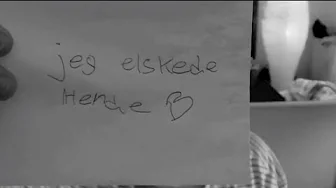 jeg elskede
Hende B